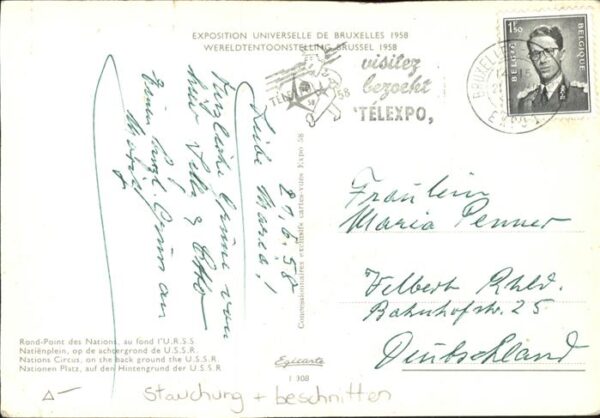 EXPOSITION UNIVERSELLE DE BRUXELLES 1958
WERELDTENTOONSTELLING BRUSSEL 1958
visitez
bezoekt
'TÉLEXPO,
58
58
BRUXELLES
EXPO
1F50
BELGIE
BELGIQUE
21.6.58
Liebe Maria!
Herzliche Grüße von
hier
Otto
Einen
Gruss an
Concessionnaires exclusifs cartes-vues Expo 58
Fräulein
Maria Penner
Velbert Rhld.
Bahnhofstr. 25
Deutschland
Rond-Point des Nations, au fond l'U.R.S.S.
Natiënplein, op de achtergrond de U.S.S.R.
Nations Circus, on the back ground the U.S.S.R.
Nationen Platz, auf den Hintergrund der U.S.S.R
Egicarte
1 308
Stauchung + beschnitten